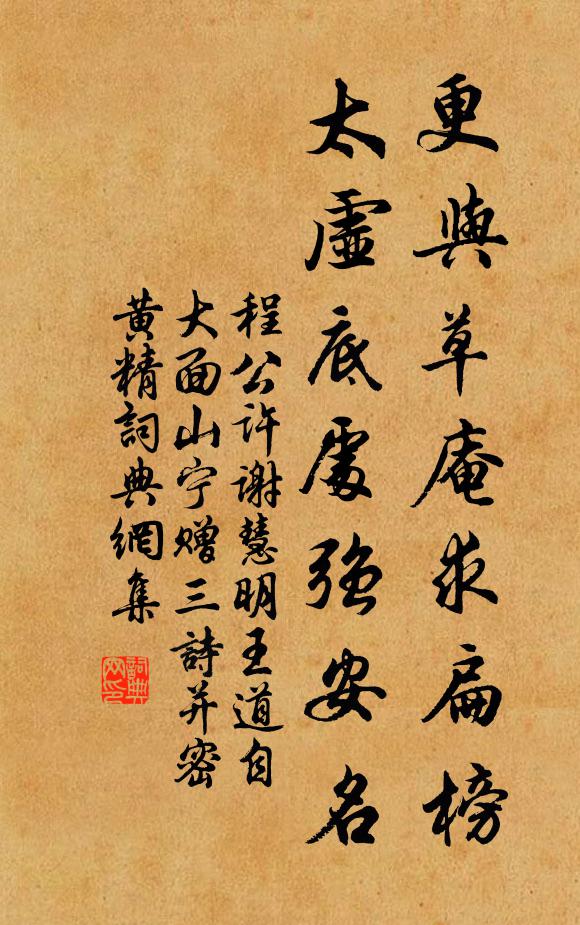 更與草庵求扁榜
太虛底處強安名
程公許謝慧明王道自
大面山宁贈三詩并密
黃精詞典網集
詞典网印